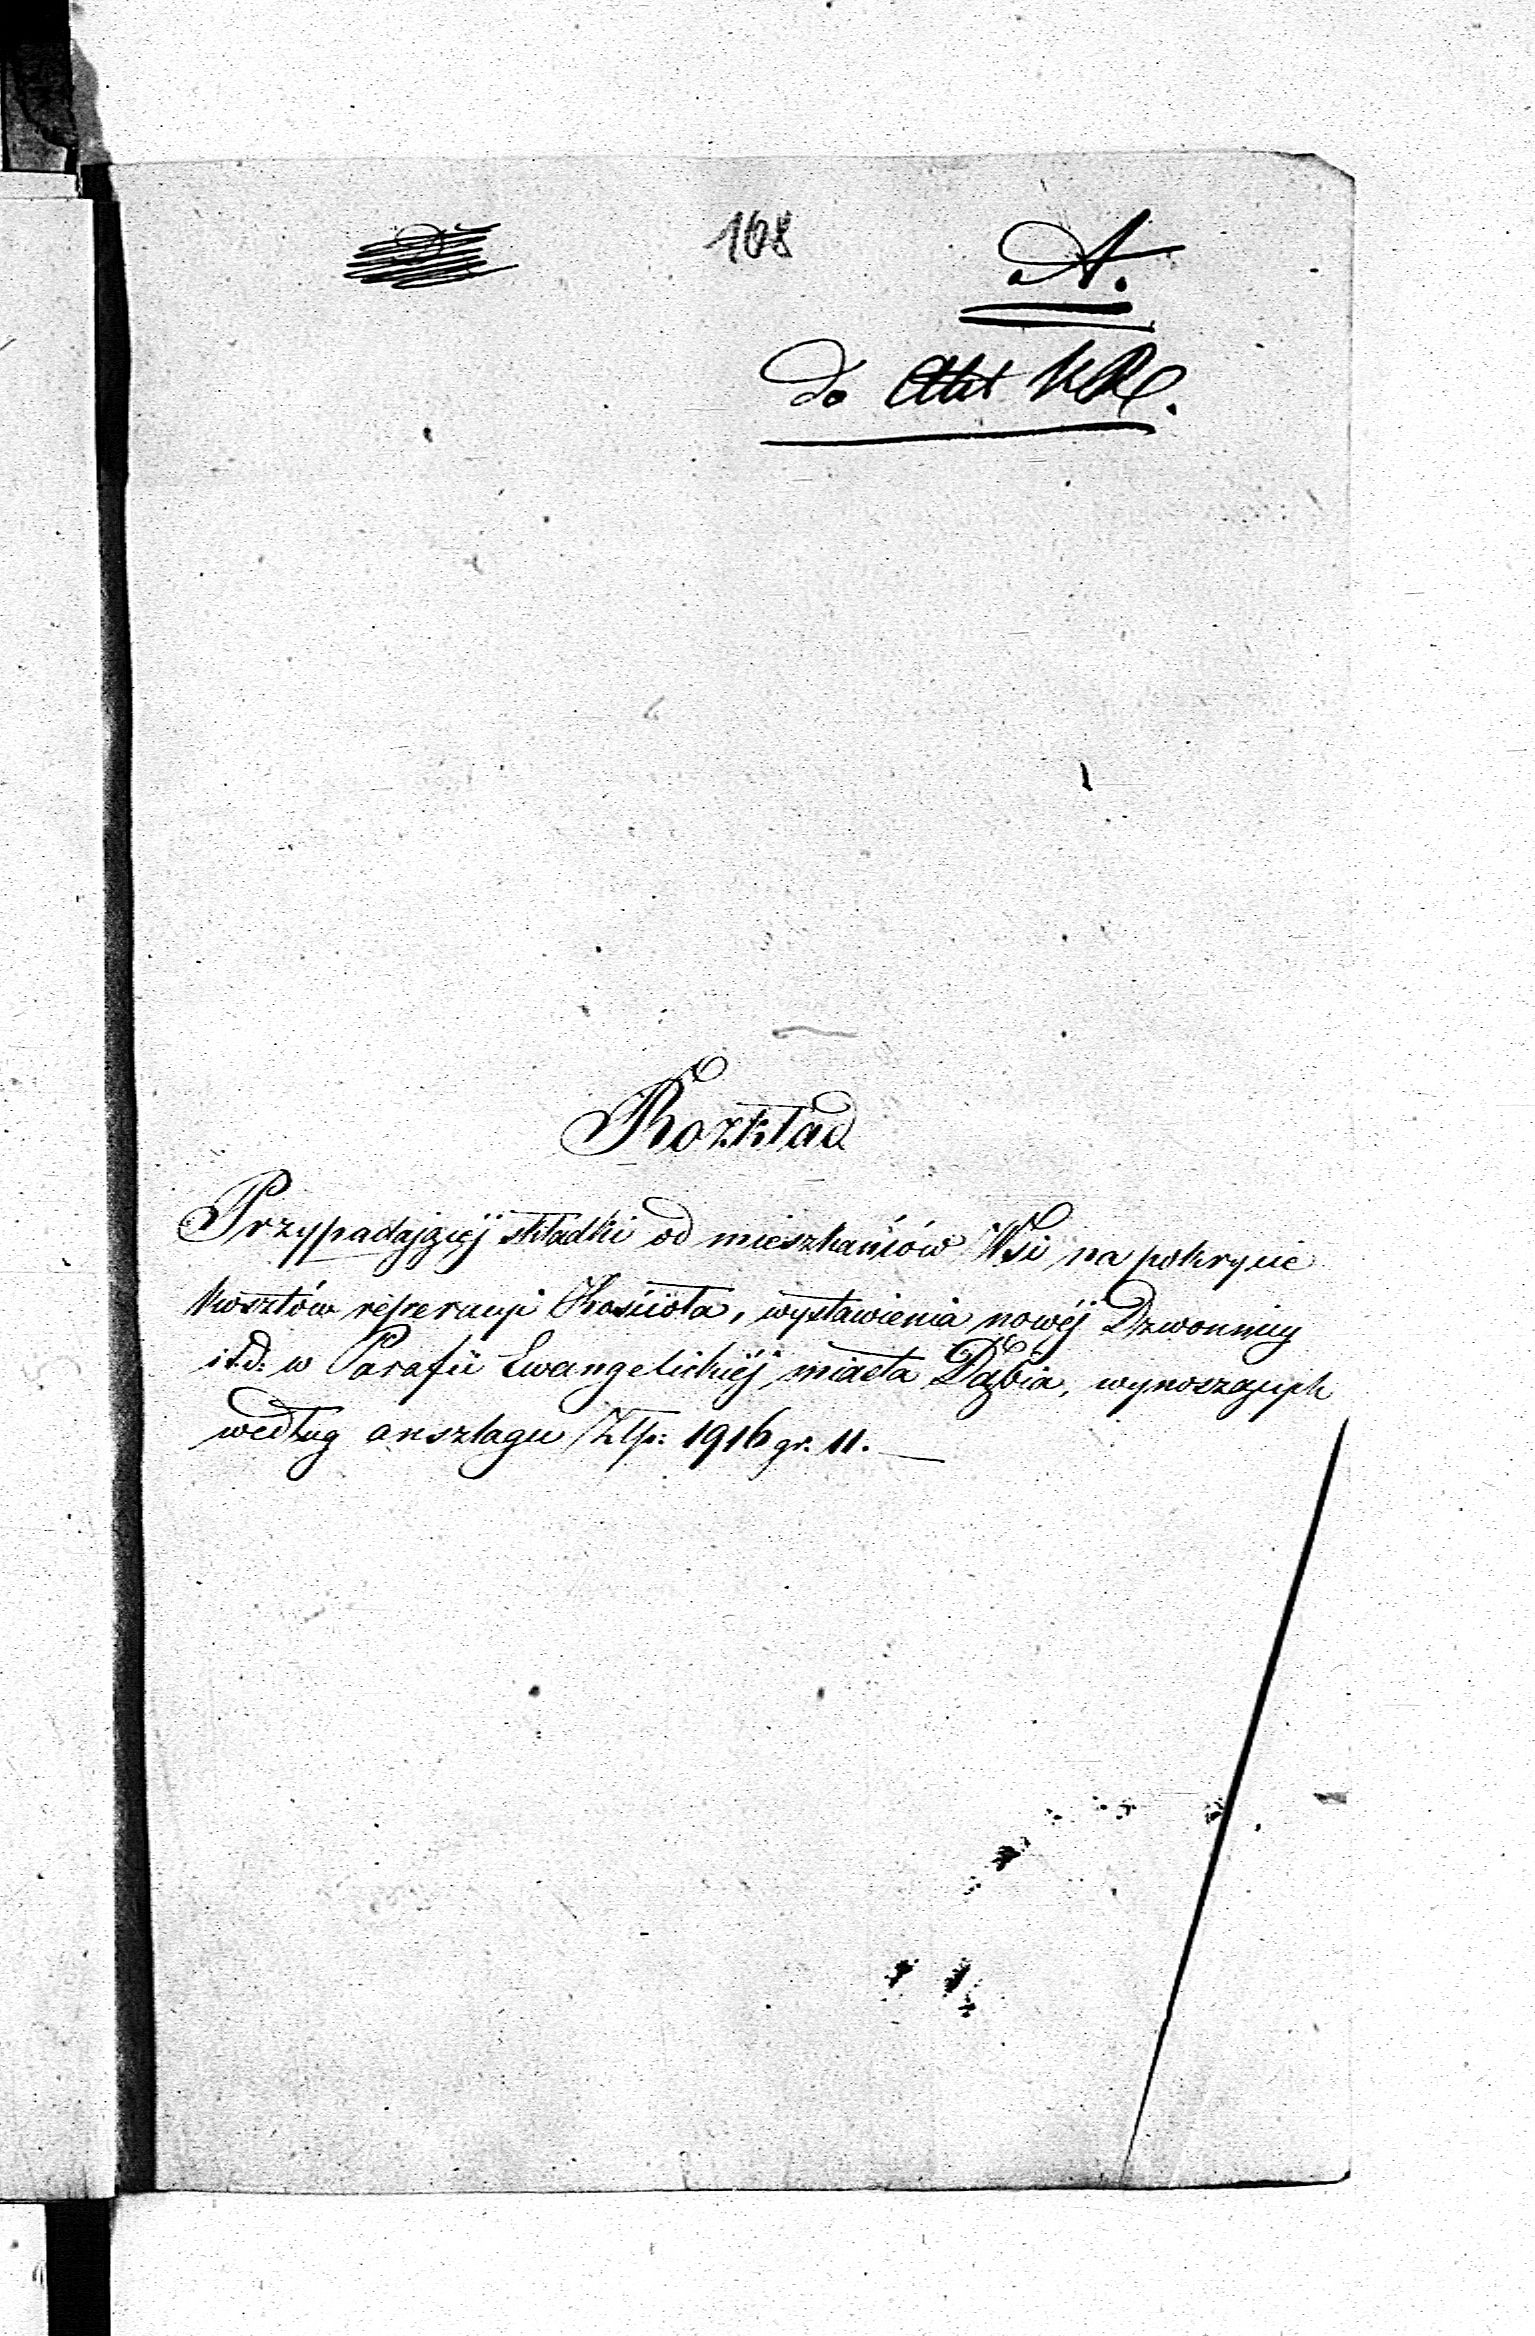 168
A.
do Akt KR.
Rozkład
Przypadającéj składki od mieszkańców Wsi na pokrycie
kosztów reperacyi Kościoła, wystawienia nowéj Dzwonnicy
i t.d. w Parafii Ewangelickiéj miasta Dąbia, wynoszących
według anszlagu Złp: 1916 gr. 11.